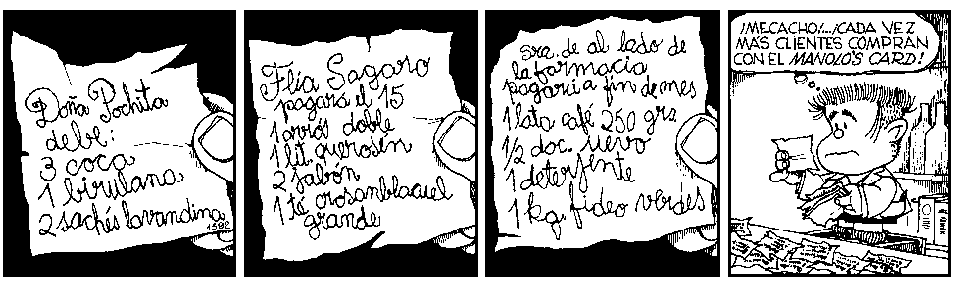 Doña Pochita
debe:
3 coca
1 birulana
2 sachés lavandina
1582
Flia Sagaro
pagará el 15
1 arrós doble
1 lit querosén
2 jabon
1 té crosanblacuel
grande
sra. de al lado de
la farmacia
pagaria a fin de mes
1 lata café 250 grs
1/2 doc. uevo
1 deterjente
1 kg. fideo verdes
¡MECACHO!...¡CADA VEZ
MÁS CLIENTES COMPRAN
CON EL MANOLO'S CARD!